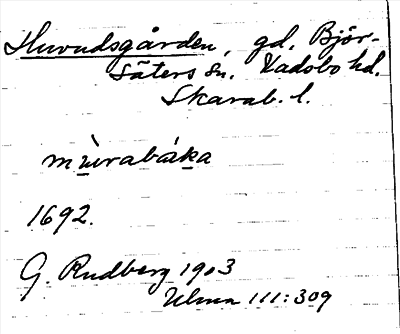 Huvudsgården, gd. Björ-
säters sn. Vadsbo hd.
Skarab. l.
mùrabáka
1692.
G. Rudberg 1903
Ulma 111:309